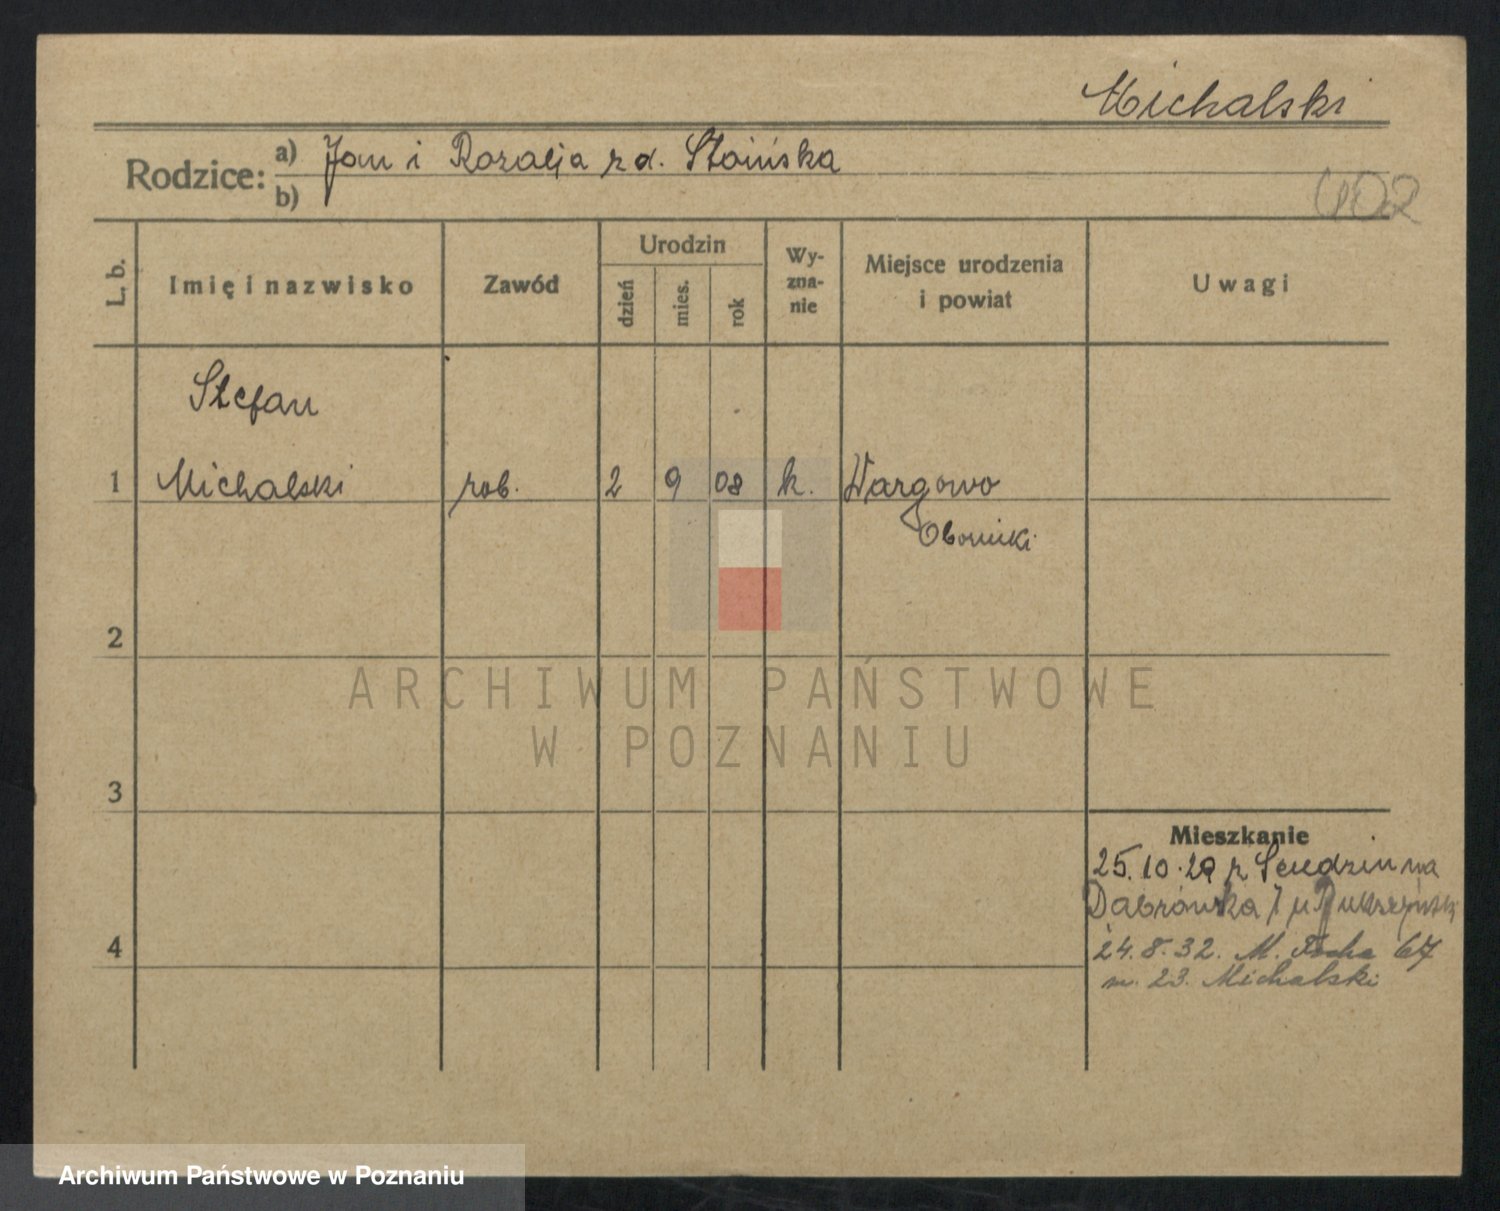 Michalski
Rodzice: a) Jan i Rozalja z d. Stoińska
b)
402
L. b. Imię i nazwisko Zawód Urodzin dzień mies. rok Wyzna-nie Miejsce urodzenia i powiat Uwagi
Stefan
1 Michalski rob. 2 9 08 k. Wargowo
Oborniki
2
ARCHIWUM PAŃSTWOWE
W POZNANIU
3
Mieszkanie
25.10.29 z Sendzin na
Dąbrówka 7 u
4
24.8.32. M. Focha 67
m. 23. Michalski
Archiwum Państwowe w Poznaniu